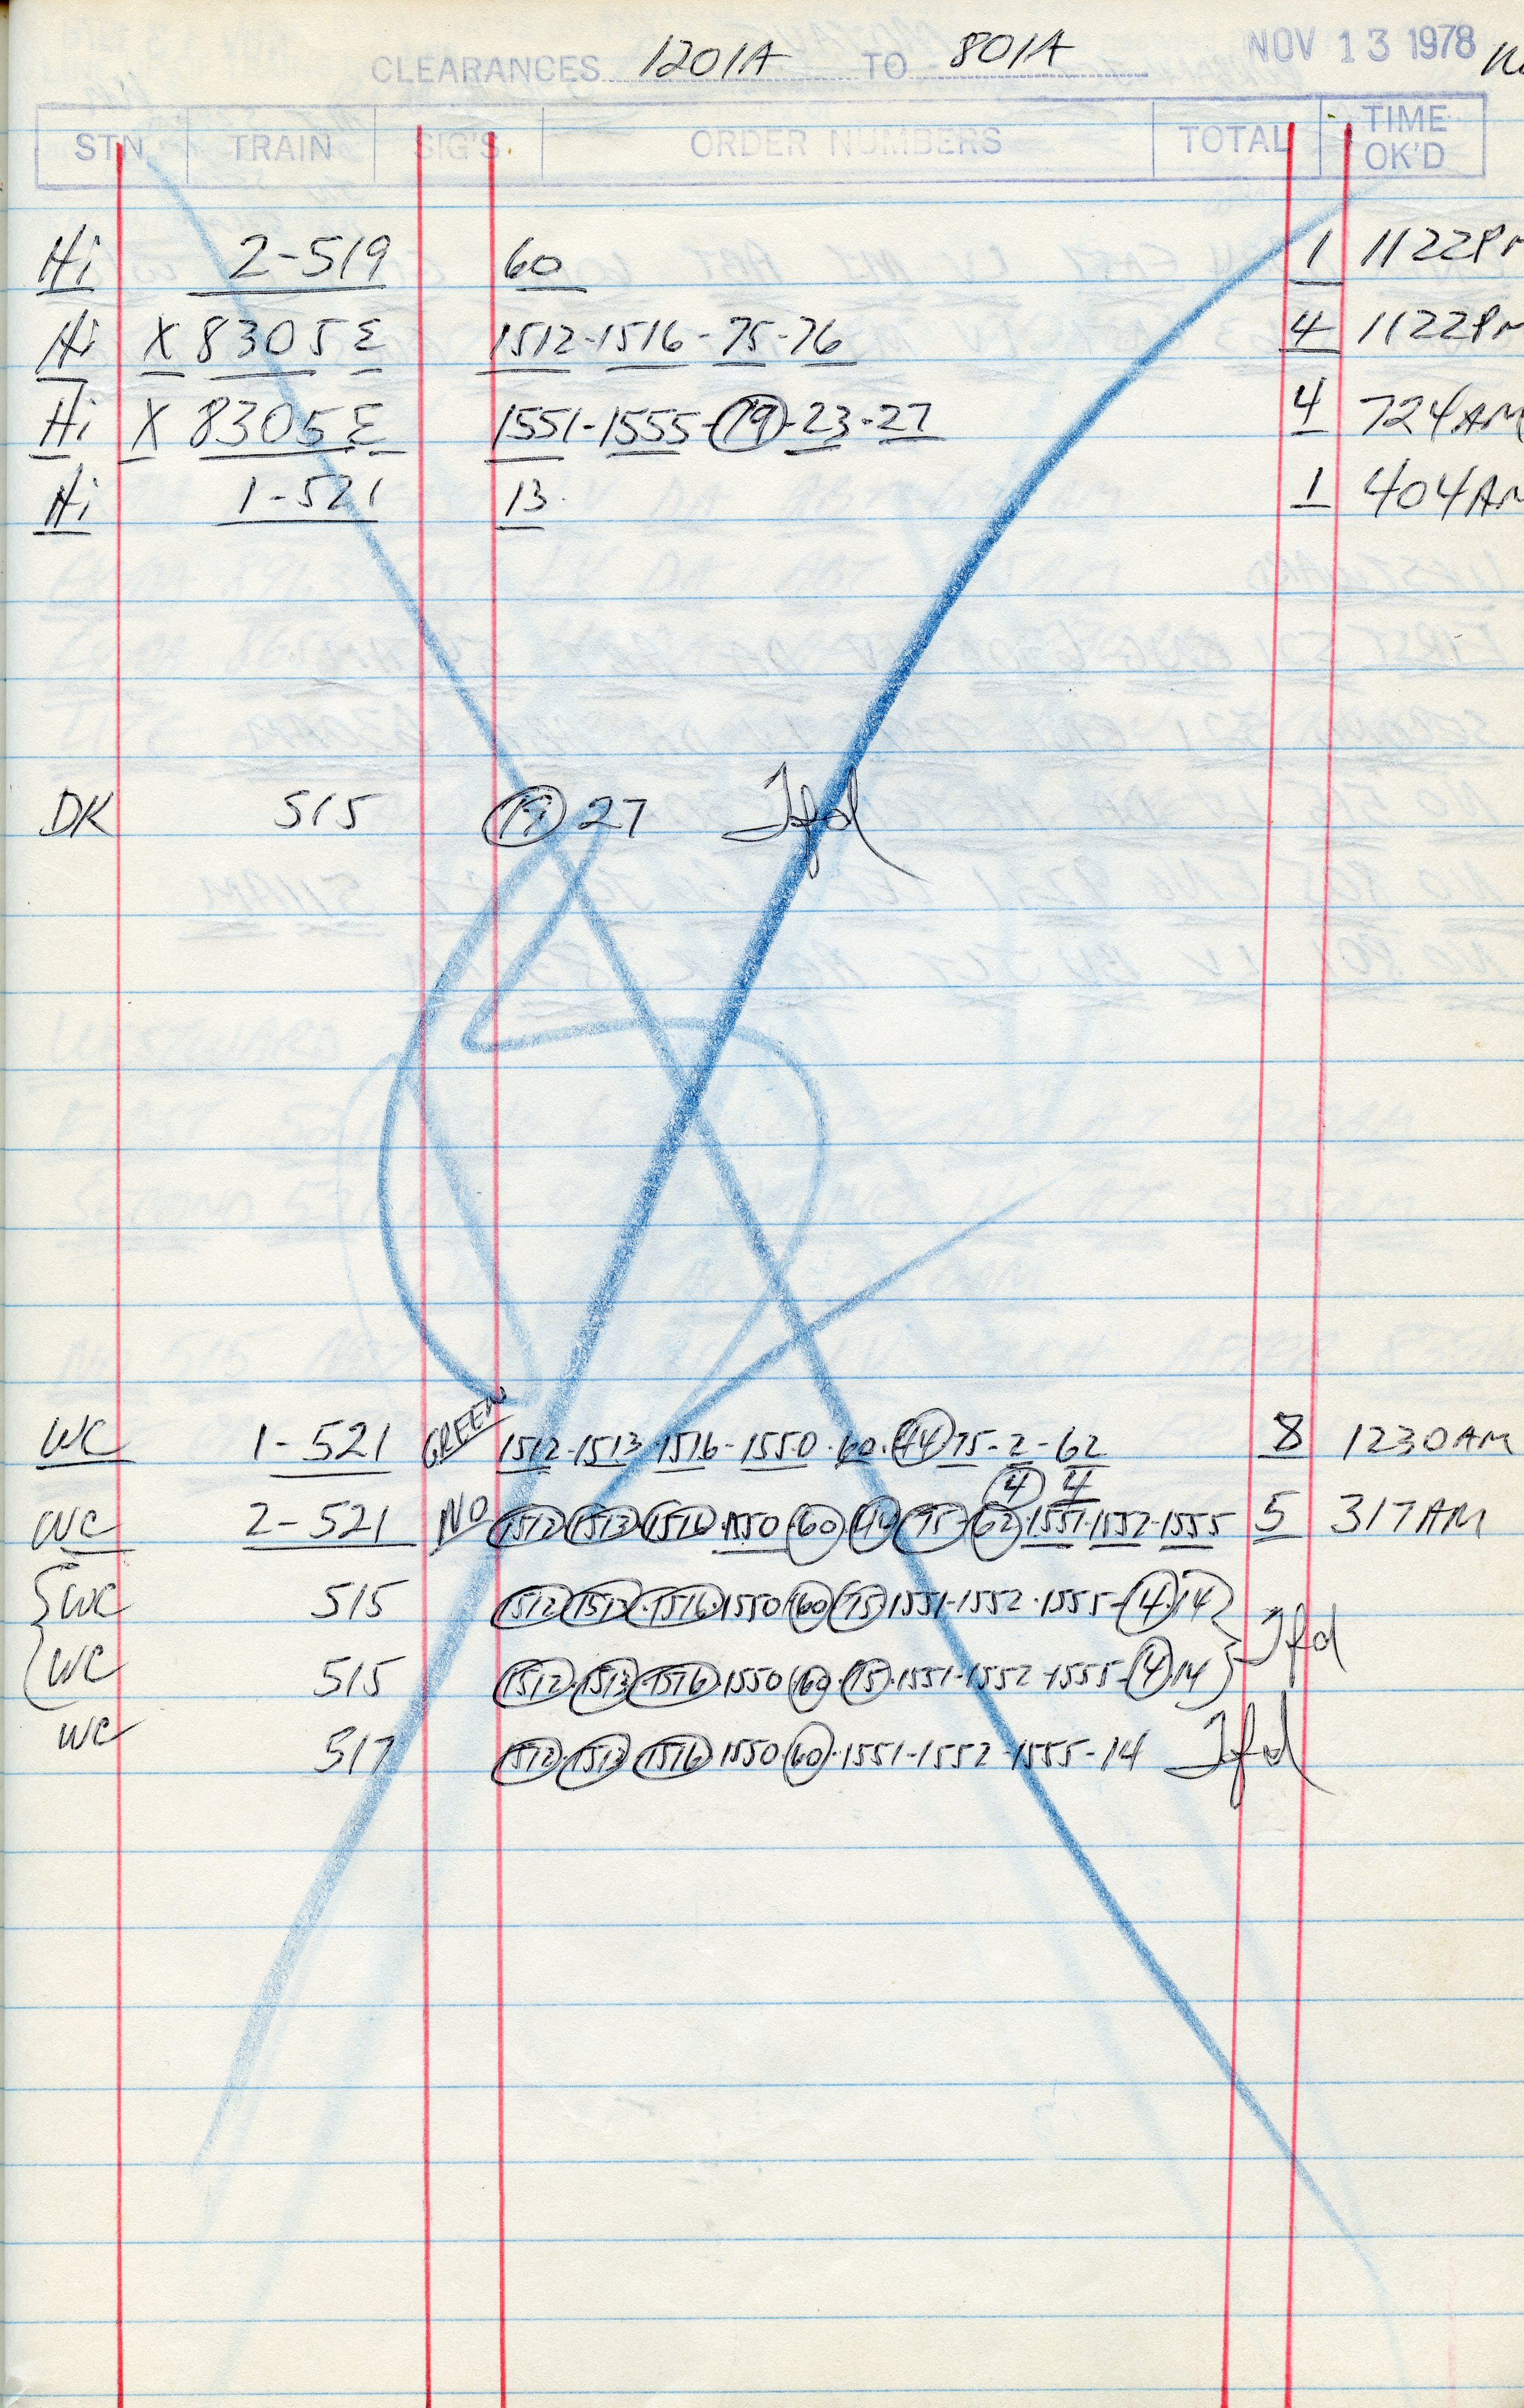 CLEARANCES 1201A TO 801A NOV 13 1978
STN TRAIN SIG'S ORDER NUMBERS TOTAL TIME OK'D
Hi 2-519 60 1 1122PM
Hi X 8305 E 1512-1516-75-76 4 1122PM
Hi X 8305 E 1551-1555-19-23-27 4 724AM
Hi 1-521 13 1 404AM
DK 515 19 27 Tfd
WC 1-521 GREEN 1512-1513-1516-1550-60-44-75-2-62 8 1230AM
4 4
WC 2-521 NO 1512-1513-1516-1550-60-44-75-62-1551-1552-1555 5 317AM
WC 515 1512-1513-1516-1550-60-75-1551-1552-1555-4-14
WC 515 1512-1513-1516-1550-60-75-1551-1552-1555-4-14 Tfd
WC 517 1512-1513-1516-1550-60-1551-1552-1555-14 Tfd